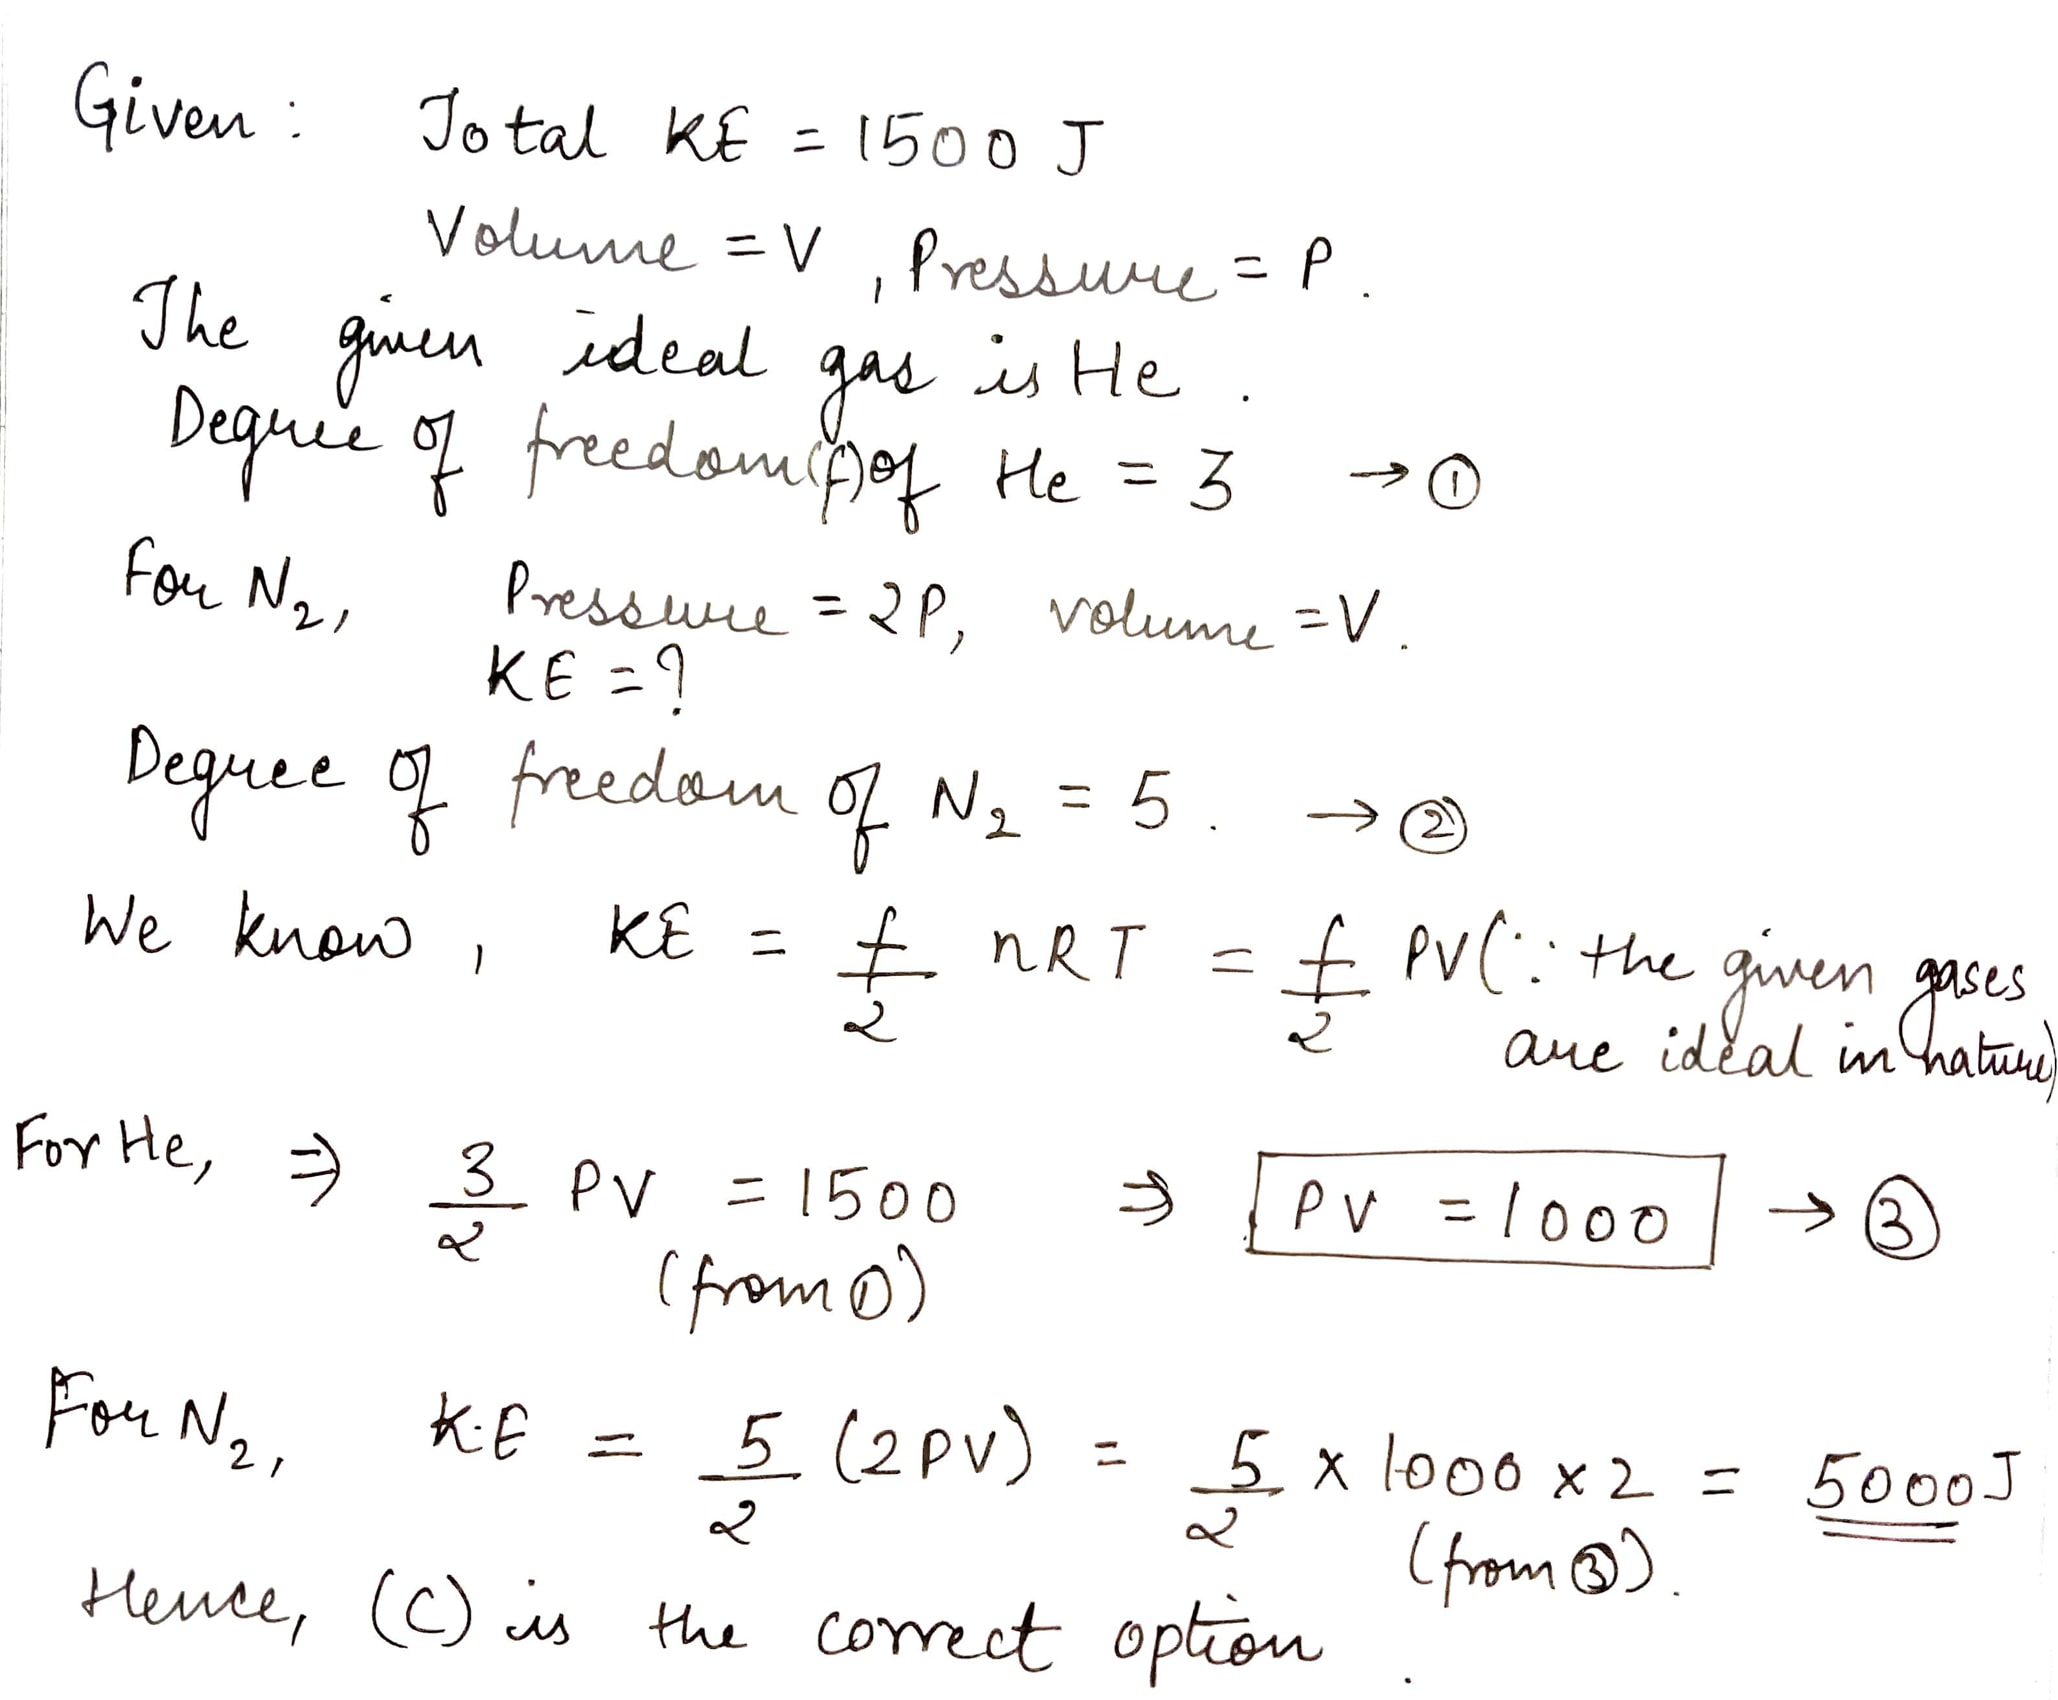 Given : Total KE = 1500 J
Volume = V , Pressure = P .
The given ideal gas is He .
Degree of freedom (f) of He = 3 → ①
For N₂, Pressure = 2P, volume = V .
KE = ?
Degree of freedom of N₂ = 5 . → ②
We know , KE = f/2 nRT = f/2 PV (∵ the given gases
are ideal in nature)
For He, ⇒ 3/2 PV = 1500 ⇒ PV = 1000 → ③
(from ①)
For N₂, K.E = 5/2 (2PV) = 5/2 × 1000 × 2 = 5000 J
(from ③).
Hence, (C) is the correct option .